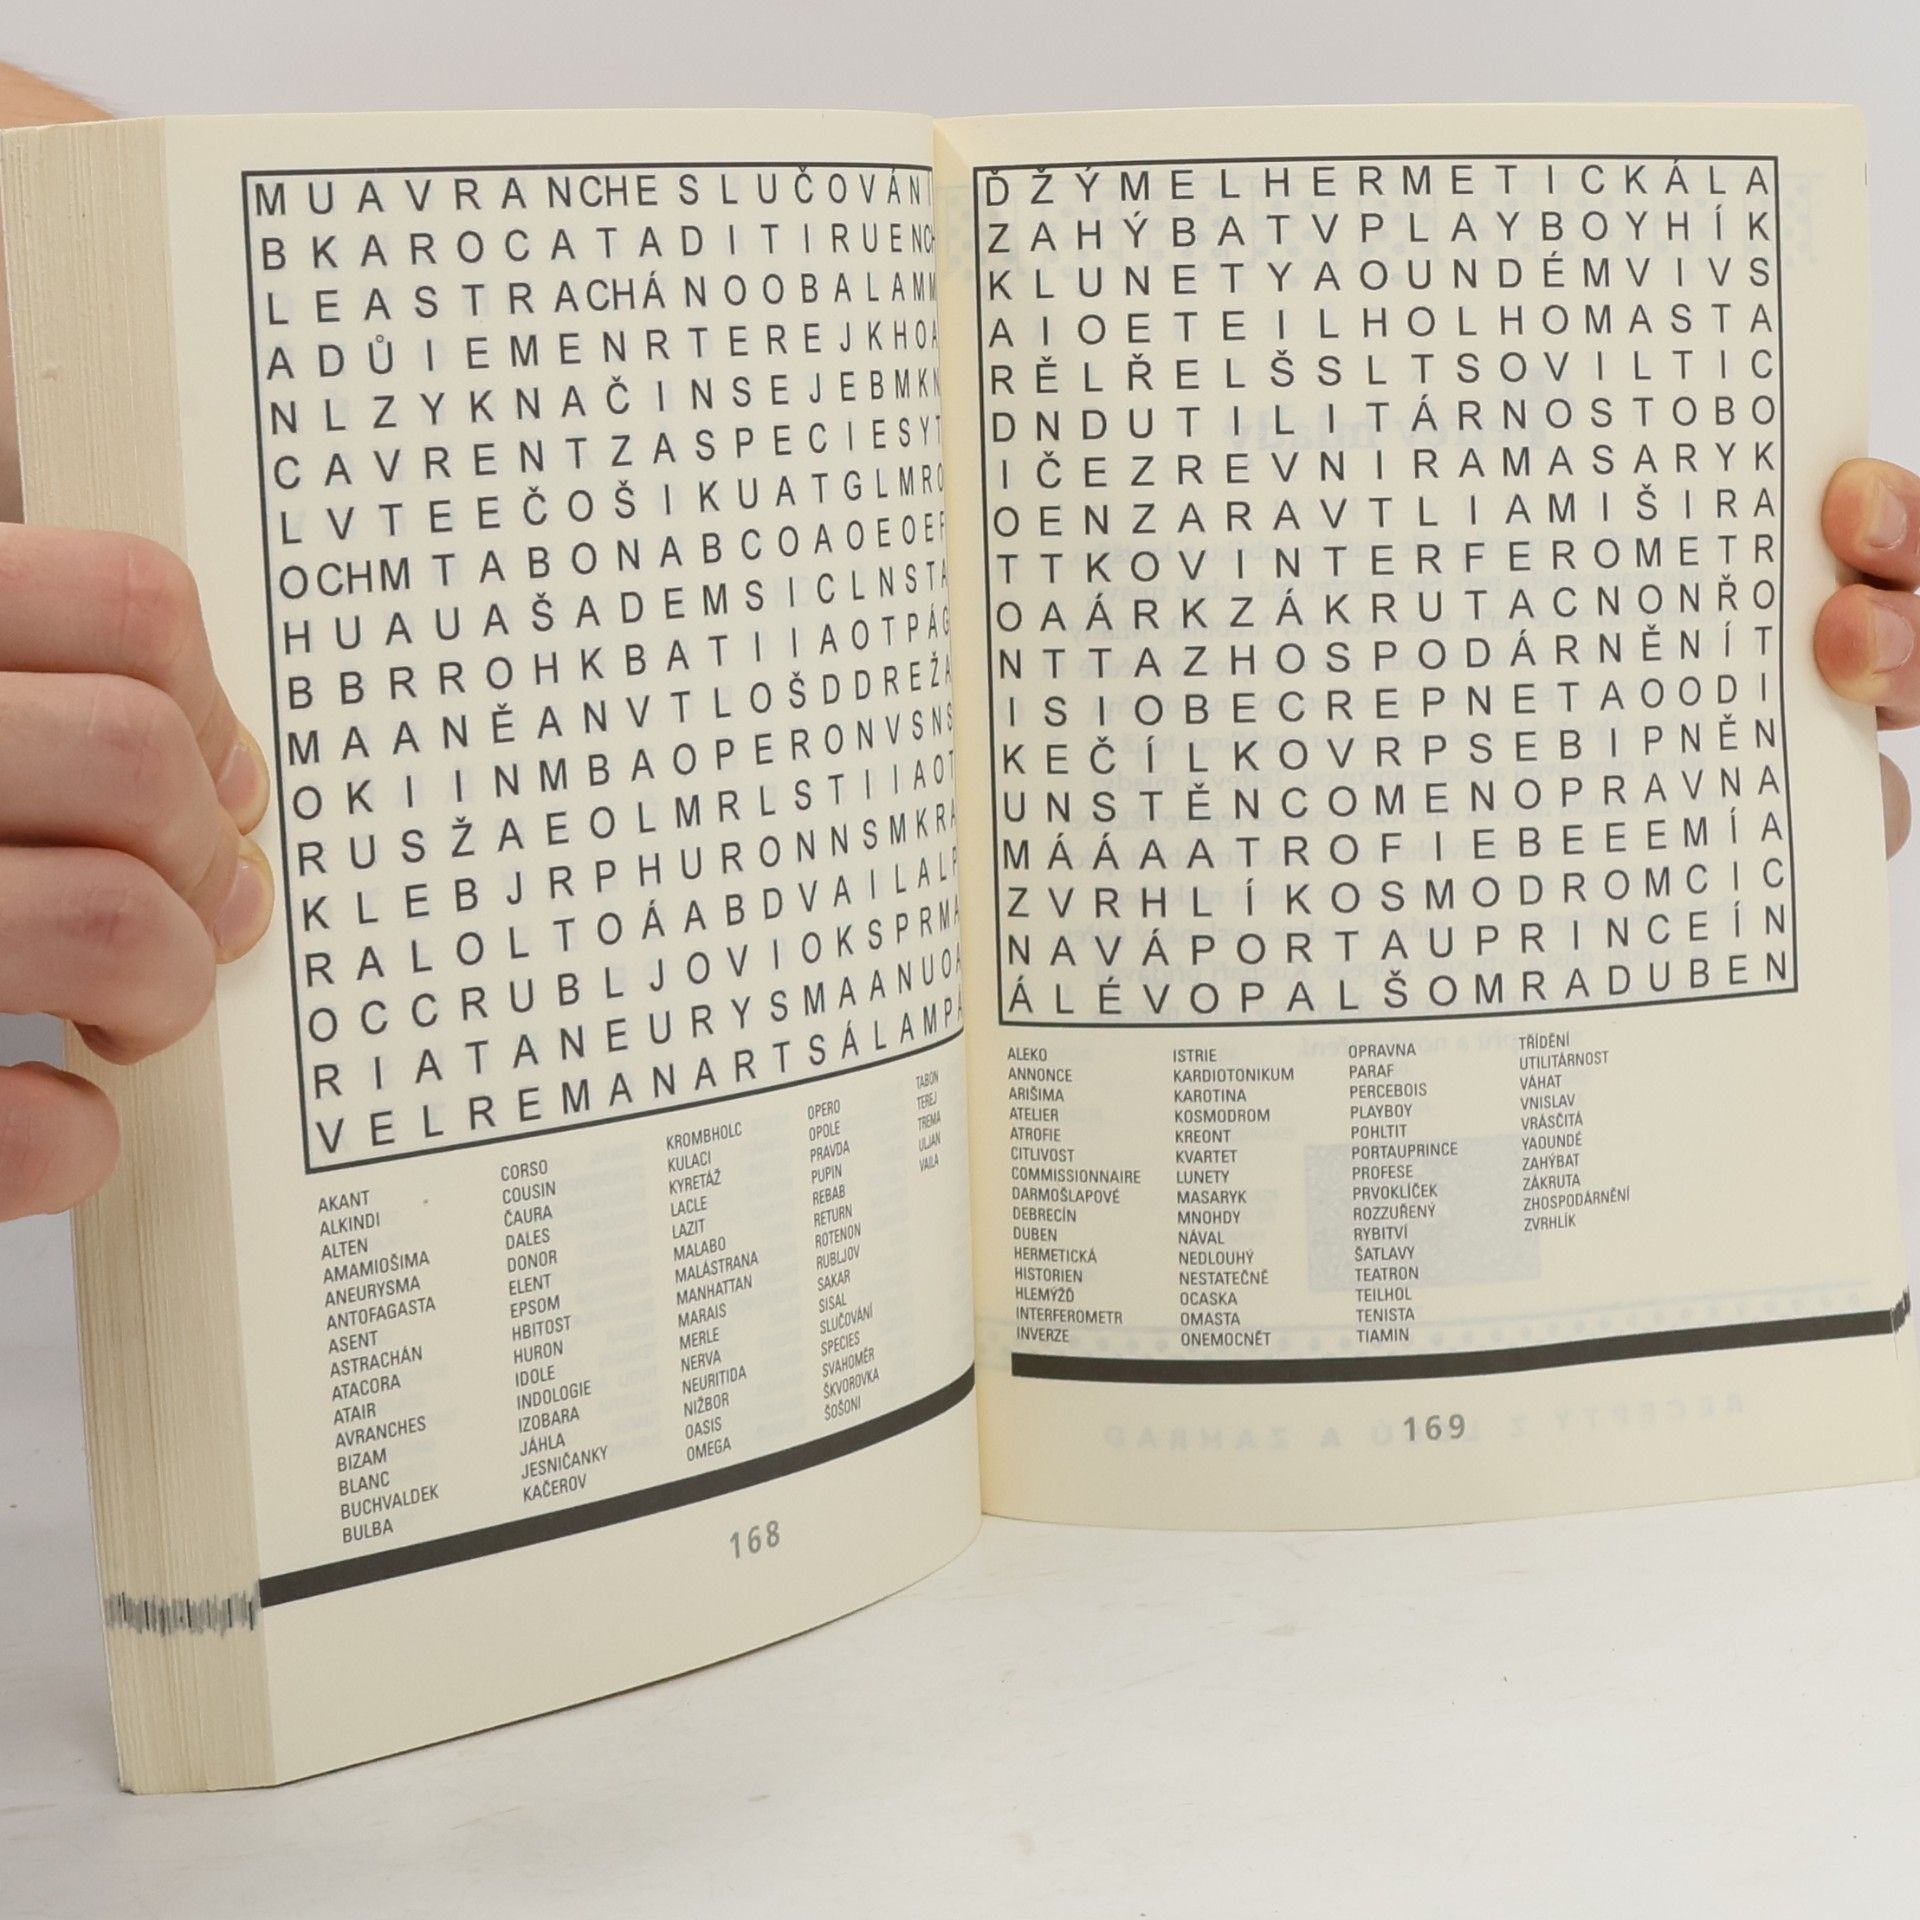 M U A V R A N CH E S L U Č O V Á N Í
B K A R O C A T A D I T I R U E N CH
L E A S T R A CH Á N O O B A L A M M
A D Ů I E M E N R T E R E J K H O A
N L Z Y K N A Č I N S E J E B M K N
C A V R E N T Z A S P E C I E S Y T
L V T E E Č O Š I K U A T G L M R O
O CH M T A B O N A B C O A O E O E F
H U A U A Š A D E M S I C L N S T A
B B R R O H K B A T I I A O T P Á G
M A A N Ě A N V T L O Š D D R E Ž A
O K I I N M B A O P E R O N V S N S
R U S Ž A E O L M R L S T I I A O T
K L E B J R P H U R O N N S M K R A
R A L O L T O Á A B D V A I L A L P
O C C R U B L J O V I O K S P R M A
R I A T A N E U R Y S M A A N U O A
V E L R E M A N A R T S Á L A M P Á
AKANT
ALKINDI
ALTEN
AMAMIOŠIMA
ANEURYSMA
ANTOFAGASTA
ASENT
ASTRACHÁN
ATACORA
ATAIR
AVRANCHES
BIZAM
BLANC
BUCHVALDEK
BULBA
CORSO
COUSIN
ČAURA
DALES
DONOR
ELENT
EPSOM
HBITOST
HURON
IDOLE
INDOLOGIE
IZOBARA
JÁHLA
JESNIČANKY
KAČEROV
KROMBHOLC
KULACI
KYRETÁŽ
LACLE
LAZIT
MALABO
MALÁSTRANA
MANHATTAN
MARAIS
MERLE
NERVA
NEURITIDA
NIŽBOR
OASIS
OMEGA
OPERO
OPOLE
PRAVDA
PUPIN
REBAB
RETURN
ROTENON
RUBLJOV
SAKAR
SISAL
SLUČOVÁNÍ
SPECIES
SVAHOMĚR
ŠKVOROVKA
ŠOŠONI
TABON
TEREJ
TREMA
ULJAN
VAILA
168
Ď Ž Ý M E L H E R M E T I C K Á L A
Z A H Ý B A T V P L A Y B O Y H Í K
K L U N E T Y A O U N D É M V I V S
A I O E T E I L H O L H O M A S T A
R Ě L Ř E L Š S L T S O V I L T I C
D N D U T I L I T Á R N O S T O B O
I Č E Z R E V N I R A M A S A R Y K
O E N Z A R A V T L I A M I Š I R A
T T K O V I N T E R F E R O M E T R
O A Á R K Z Á K R U T A C N O N Ř O
N T T A Z H O S P O D Á R N Ě N Í T
I S I O B E C R E P N E T A O O D I
K E Č Í L K O V R P S E B I P N Ě N
U N S T Ě N C O M E N O P R A V N A
M Á Á A A T R O F I E B E E E M Í A
Z V R H L Í K O S M O D R O M C I C
N A V Á P O R T A U P R I N C E Í N
Á L É V O P A L Š O M R A D U B E N
ALEKO
ANNONCE
ARIŠIMA
ATELIER
ATROFIE
CITLIVOST
COMMISSIONNAIRE
DARMOŠLAPOVÉ
DEBRECÍN
DUBEN
HERMETICKÁ
HISTORIEN
HLEMÝŽĎ
INTERFEROMETR
INVERZE
ISTRIE
KARDIOTONIKUM
KAROTINA
KOSMODROM
KREONT
KVARTET
LUNETY
MASARYK
MNOHDY
NÁVAL
NEDLOUHÝ
NESTATEČNĚ
OCASKA
OMASTA
ONEMOCNĚT
OPRAVNA
PARAF
PERCEBOIS
PLAYBOY
POHLTIT
PORTAUPRINCE
PROFESE
PRVOKLÍČEK
ROZZUŘENÝ
RYBITVÍ
ŠATLAVY
TEATRON
TEILHOL
TENISTA
TIAMIN
TŘÍDĚNÍ
UTILITÁRNOST
VÁHAT
VNISLAV
VRÁSČITÁ
YAOUNDÉ
ZAHÝBAT
ZÁKRUTA
ZHOSPODÁRNĚNÍ
ZVRHLÍK
169